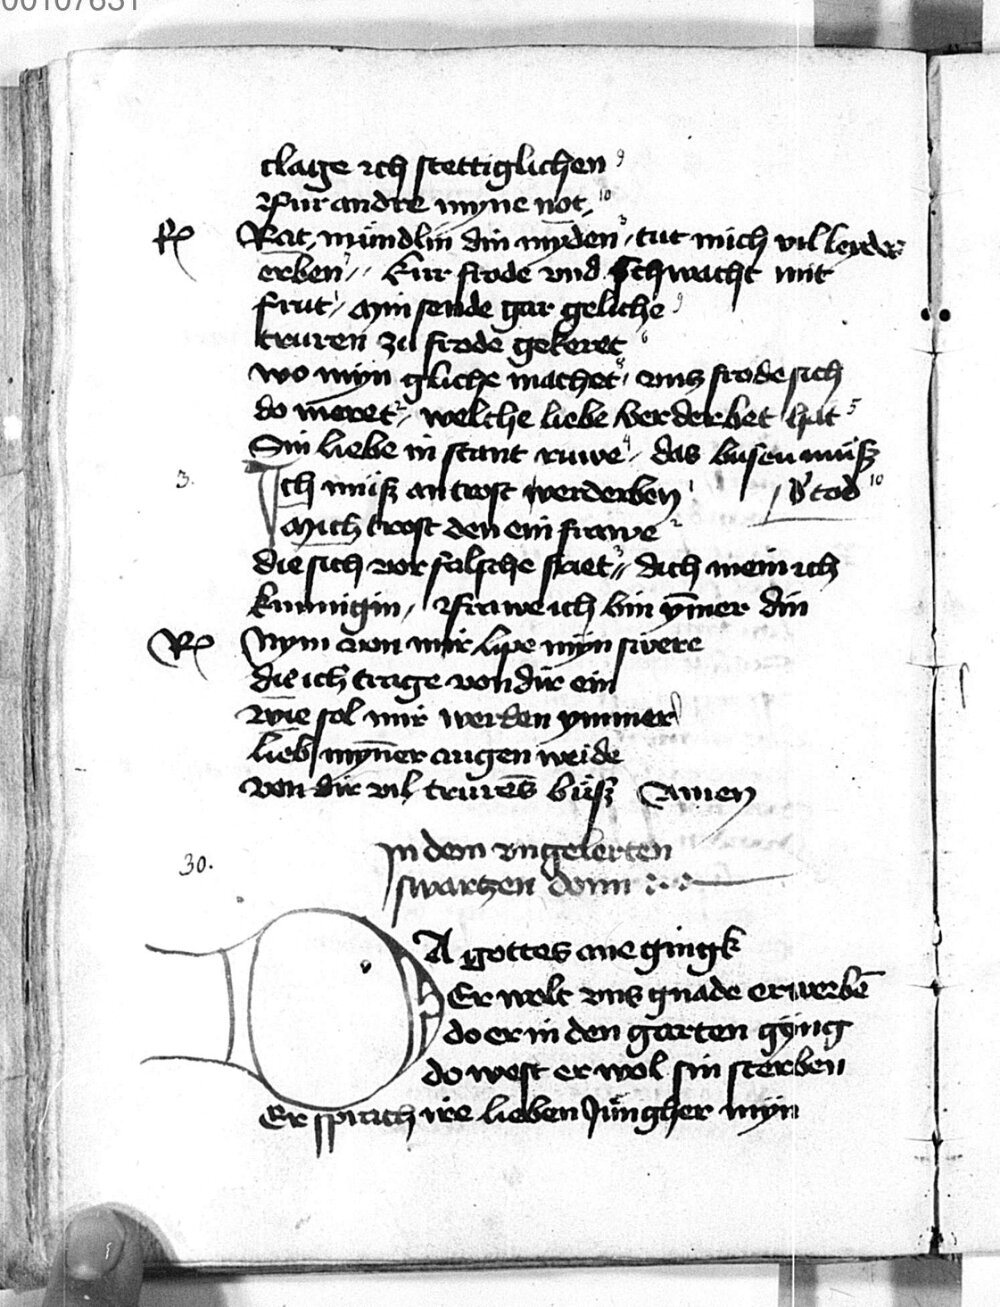 00107631
clage ich stettiglichen 9
Fur andre myne not, 10
Rx Rot mündlin din myden 3 tut mich vil leyder
erben 7 kur frode vnd schwacht mit
frut myn sende gar geliche 9
truren zu frode gekeret 6
wo myn gliche machet 8 vns frode sich
do meret 2 welche liebe verderbet hat 5
Sin liebe in stant ruwe 4 das busen muß
3. Ich muß an trost verderben 1 / d' tod 10
mich trost den ein frawe 2
die sich vor falsche fret 3 dich mein ich
kunnigin, frawe ich bin ȳmer din
Rx Nym von mir lipe myn swere
die ich trage von dir ein
wie sol mir werden ymmer
lieb myner augen weide
von dir vil trurēs büß Amen
30. In dem vngelerten
swartzen donn
A gottes ane gingk
Er wolt vns gnade erwerbē
do er in den garten gÿng
do west er wol sin sterben
Er sprach ire lieben Jüngher myn